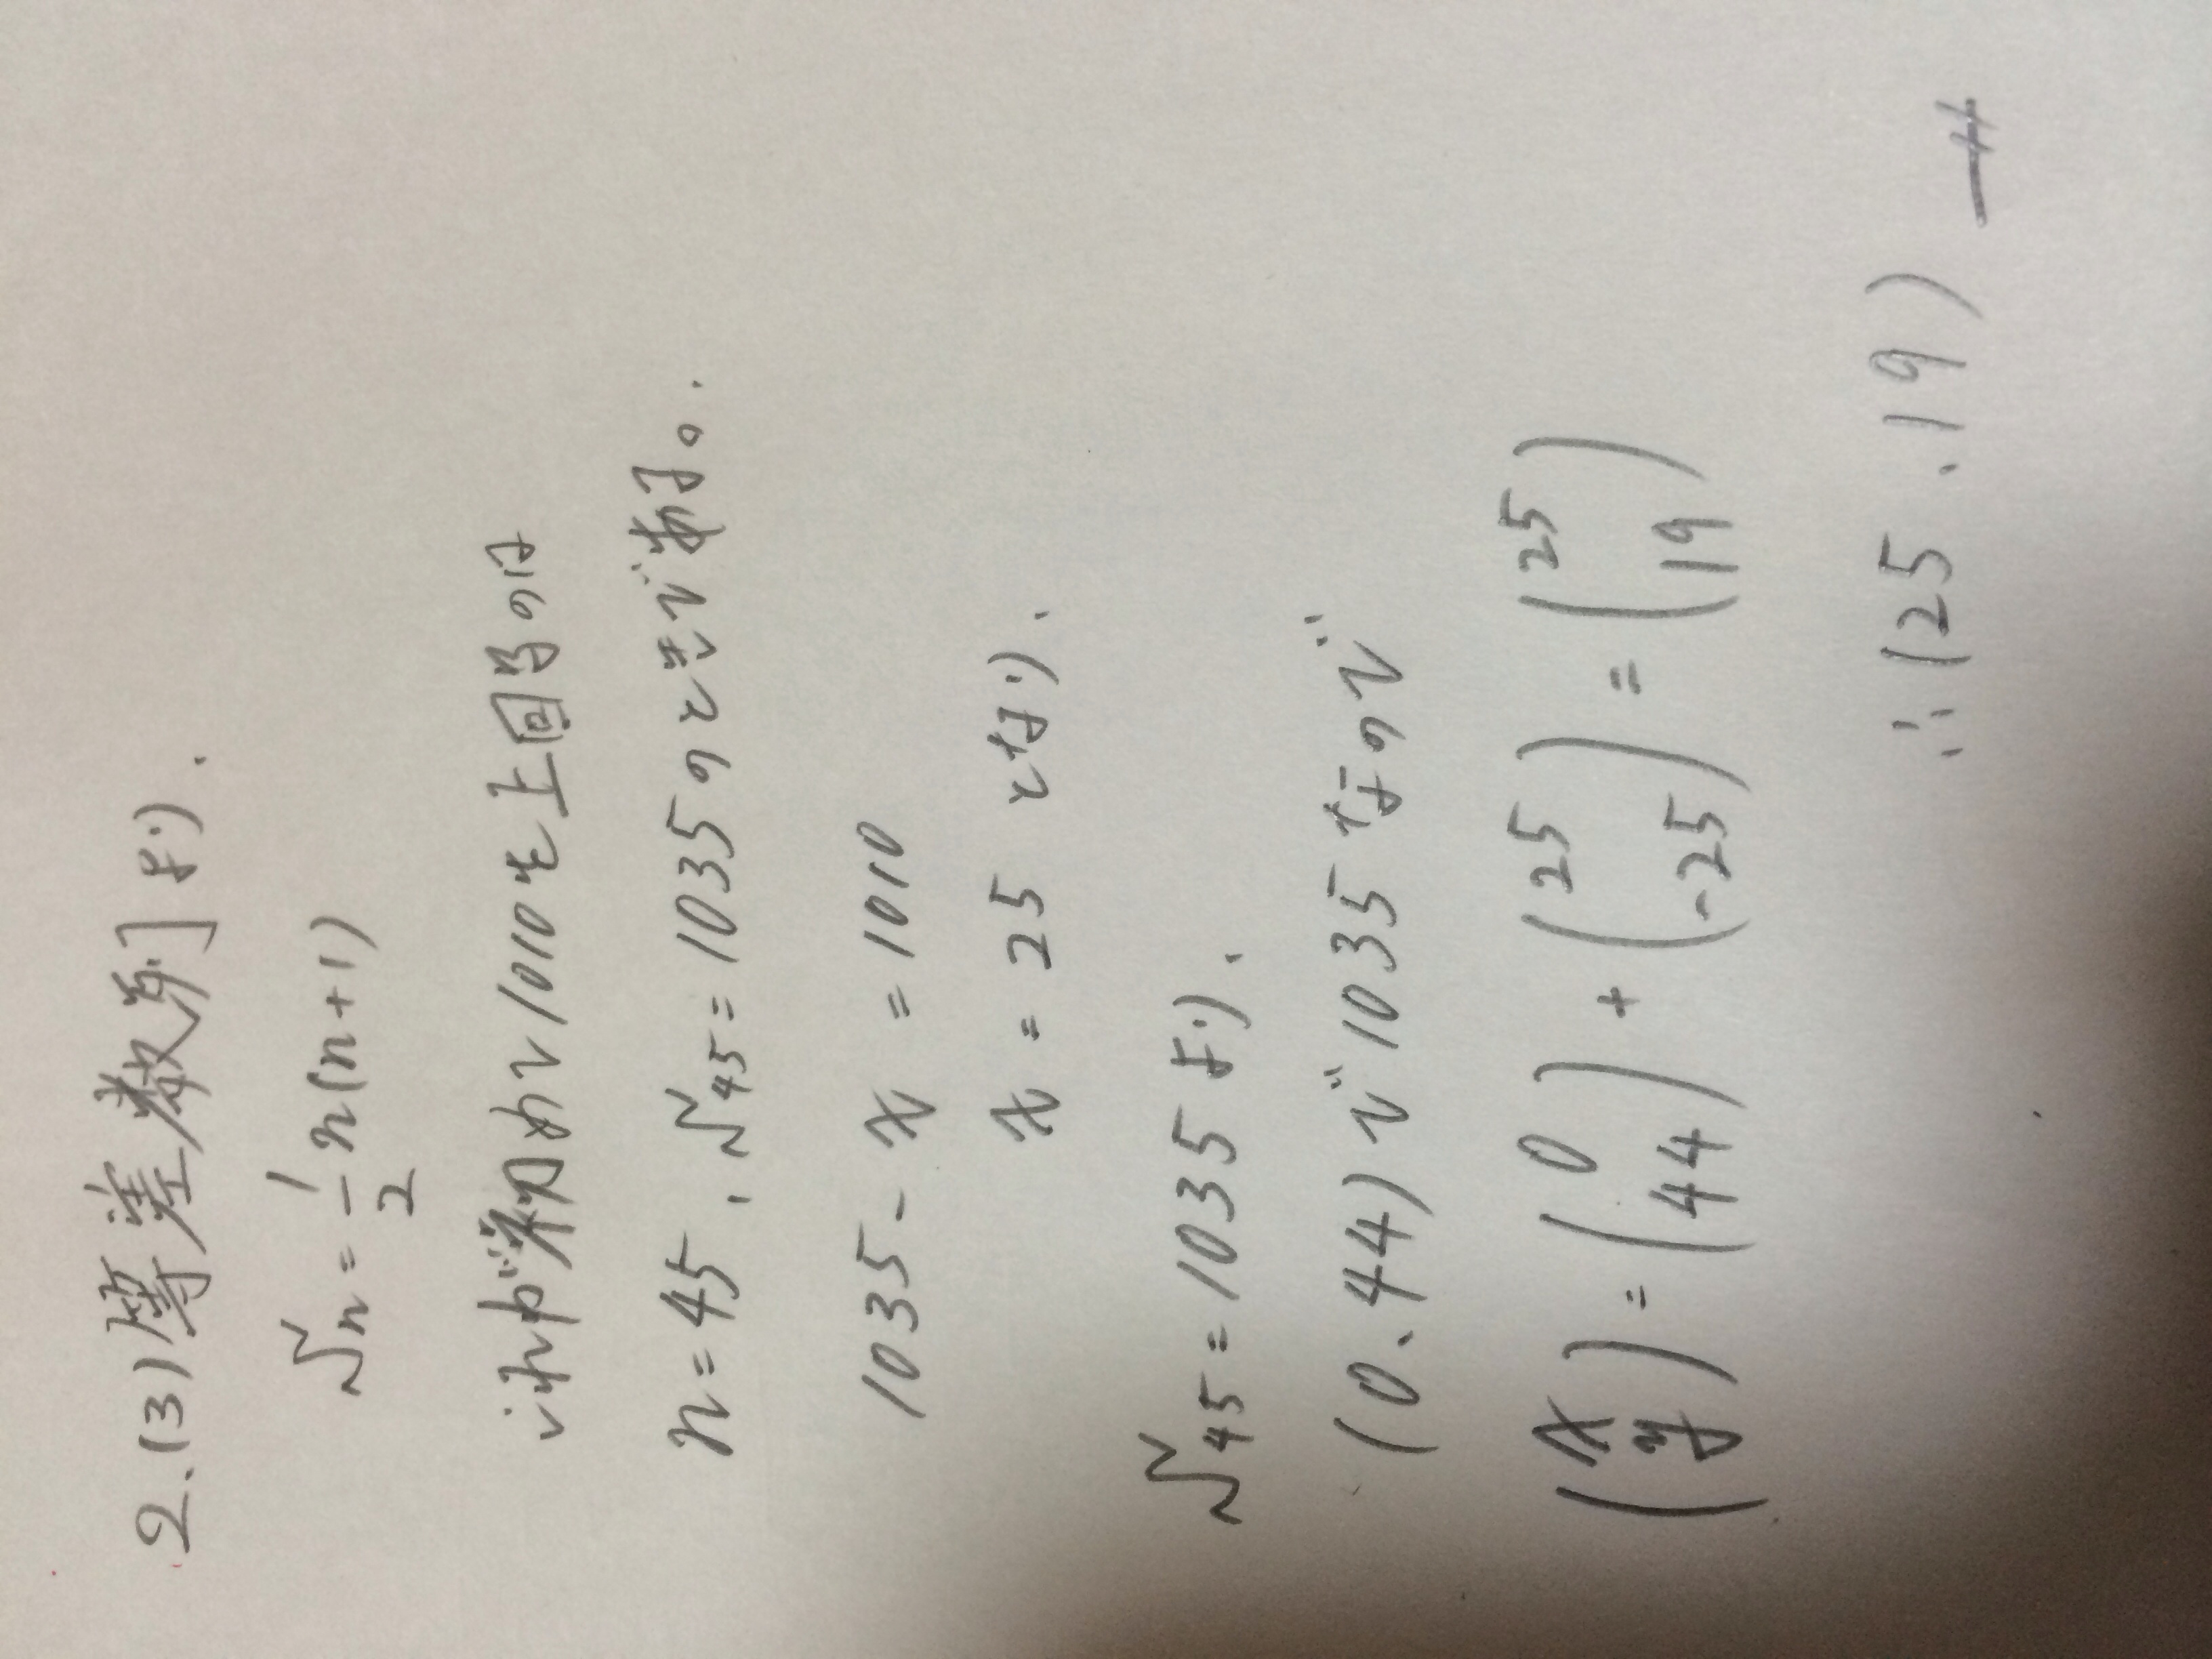 2.(3)等差数列より.
Sn = 1/2 n(n+1)
これが初めて1010を上回るのは
n=45、S45=1035のときである.
1035-x = 1010
x = 25 となり、
S45=1035より、
(0.44)で1035なので
(x y) = (0 44) + (25 -25) = (25 19)
∴(25.19)